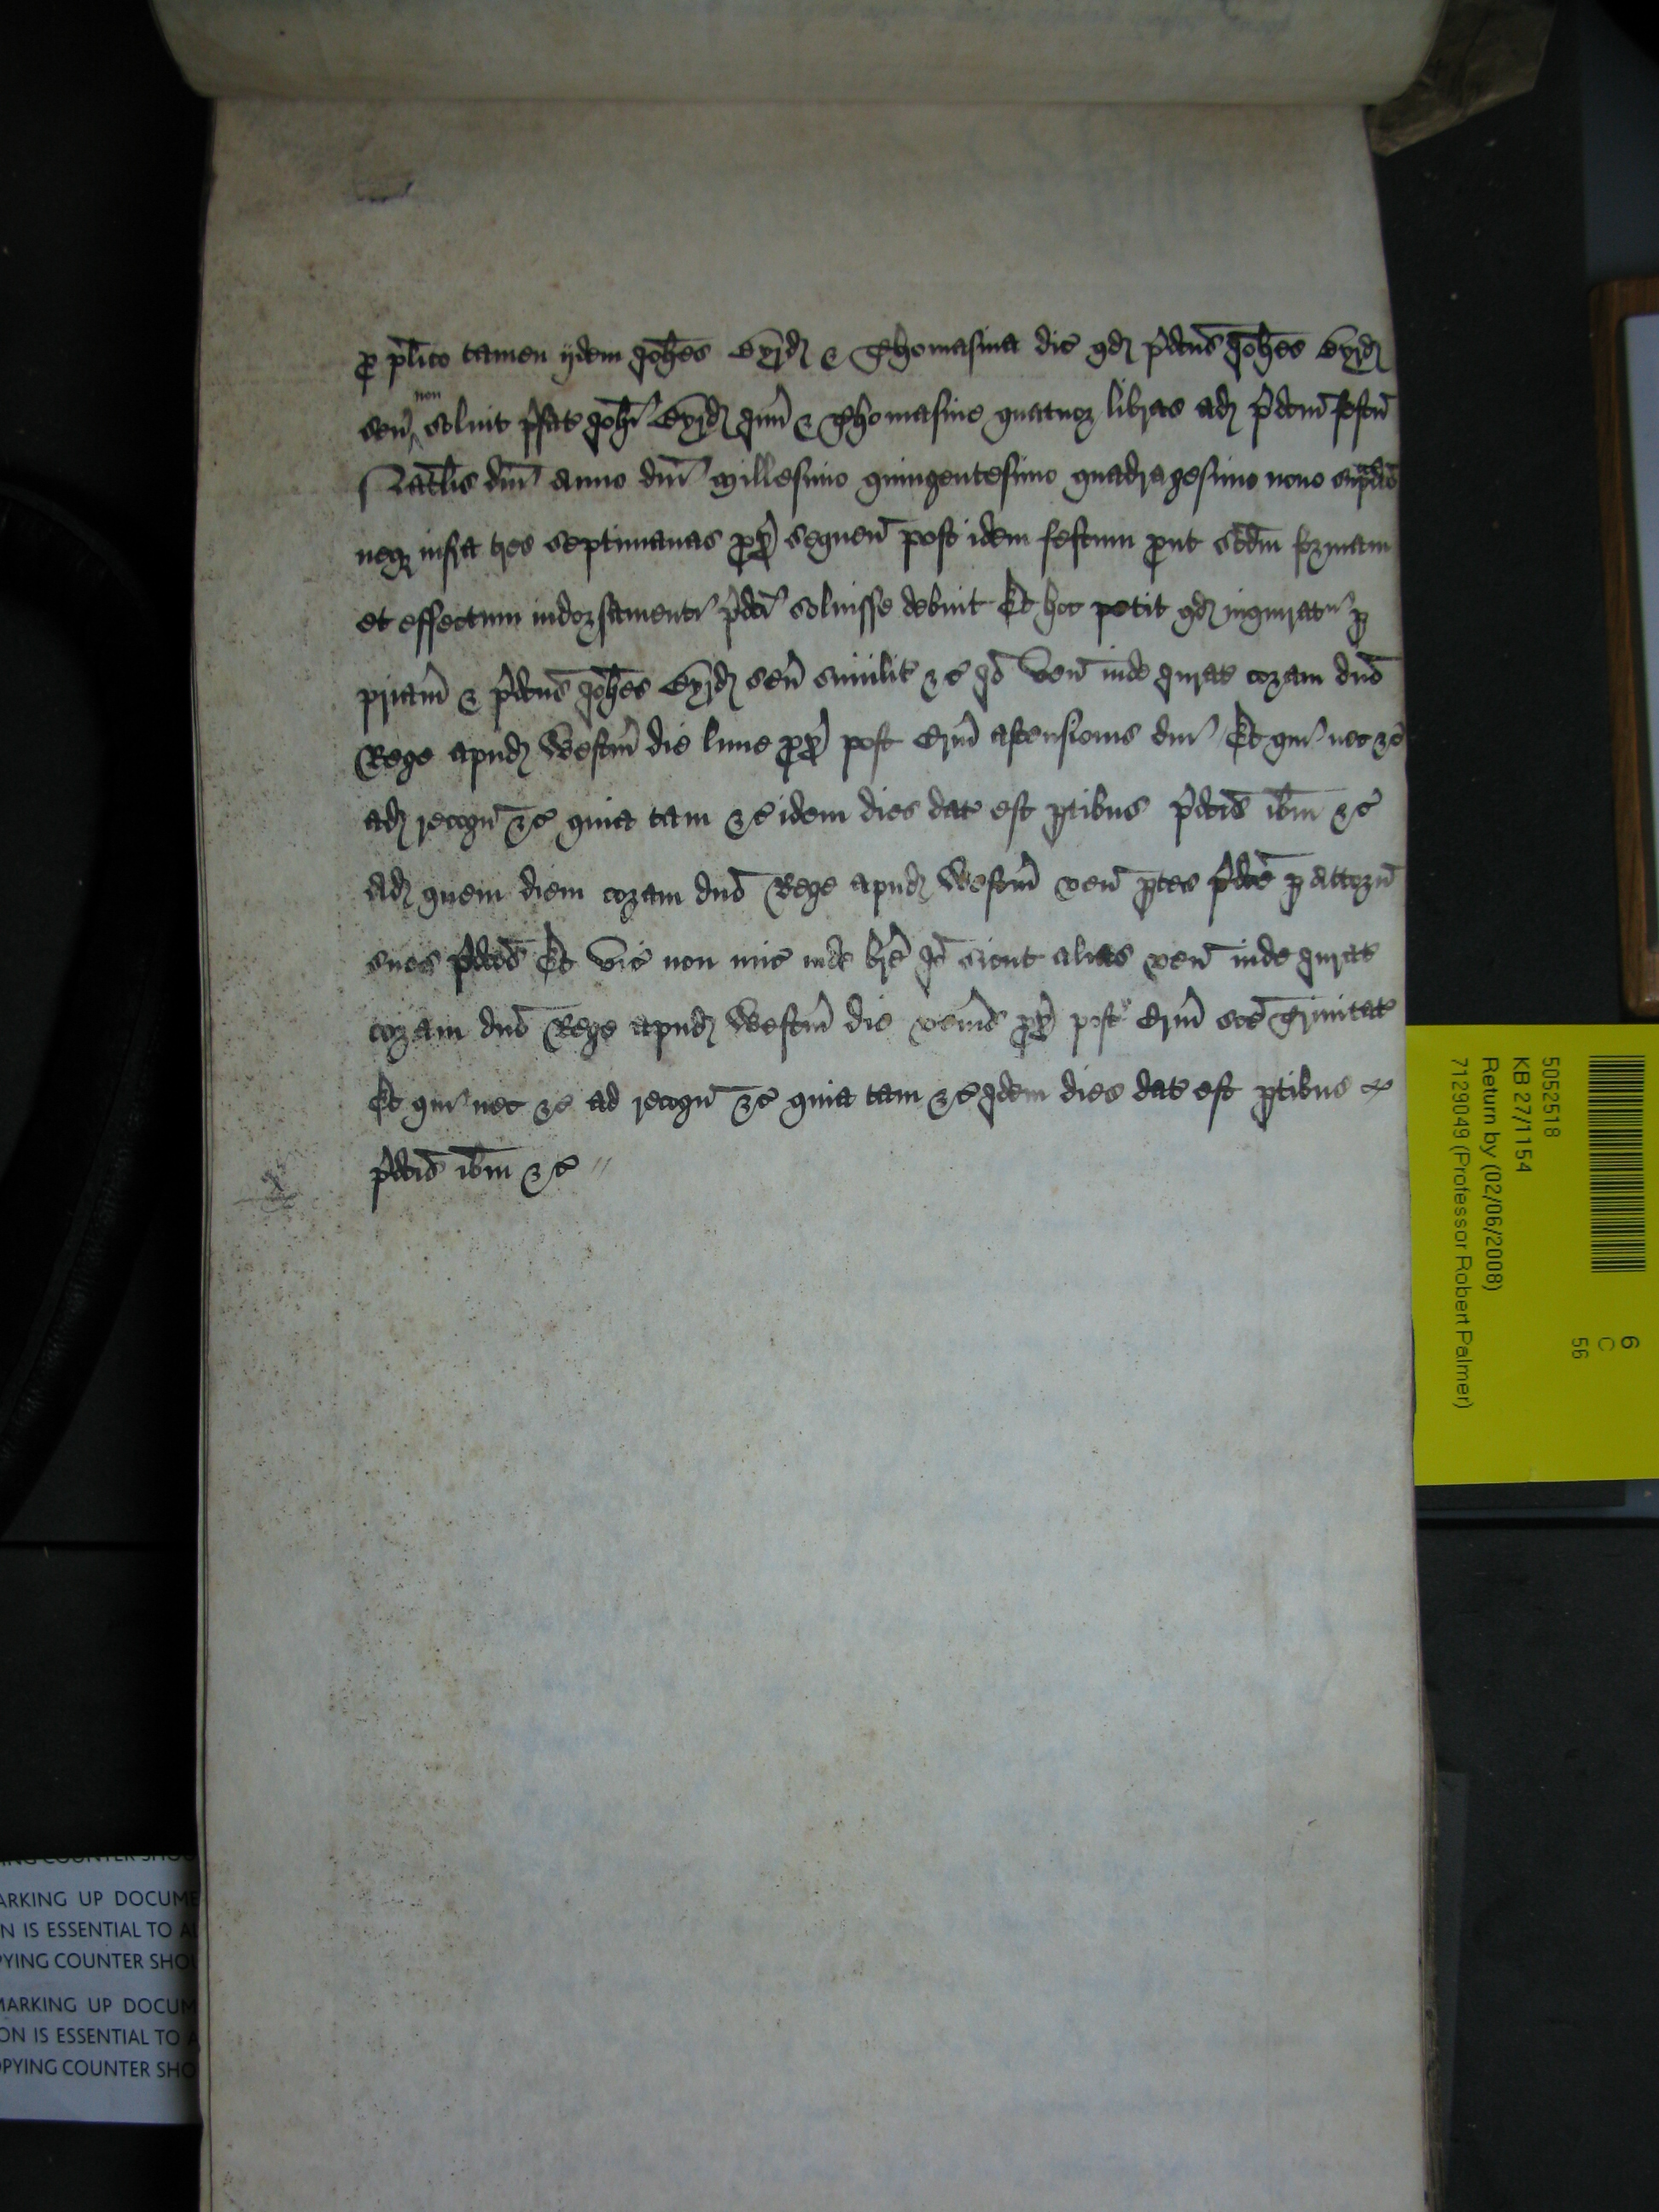 p̱ pl̄ito tamen ijdem Joh̄es Byrd & Thomasina dic̄ qd̄ p̄dcūs Joh̄es Byrd
sen̄ non soluit p̄fat Joh̄i Byrd Jun̄ & Thomasine quatuor libras ad p̄dcm̄ festū
Natalis dn̄i anno dn̄i millesimo quingentesimo quadragesimo nono sup̄dc̄o
neq̨ infra tres septimanas p̱x̄ sequen̄ post idem festum put sc̄dm formam
et effectum indorsamenti p̄dc̄i soluisse debuit Et hoc petit qd̄ inquirat' p
pr̄iam & p̄dcūs Joh̄es Byrd sen̄ similit &c Jō ven̄ inde Jurat coram dn̄o
Rege apud Westm̄ die lune p̱x̄ post Crm̄ ascensionis dn̄i Et qui nec &c
ad recogn̄ &c quia tam &c idem dies dat est ptibus p̄dc̄is ibm̄ &c
Ad quem diem coram dn̄o Rege apud Westm̄ ven̄ ptes p̄dc̄e p attorn̄
suos p̄dc̄os Et vic̄ non mis̄ inde br̄e Jō sicut alias ven̄ inde Jurat
coram dn̄o Rege apud Westm̄ die ven̄is p̱x̄ post Crm̄ sc̄e Trinitat
Et qui nec &c ad recogn̄ &c quia tam &c Idem dies dat est ptibus
p̄dc̄is ibm̄ &c //
5052518
KB 27/1154
Return by (02/06/2008)
7129049 (Professor Robert Palmer)
6
C
56
ARKING UP DOCUME
N IS ESSENTIAL TO A
PYING COUNTER SHO
MARKING UP DOCUM
ON IS ESSENTIAL TO A
OPYING COUNTER SHO